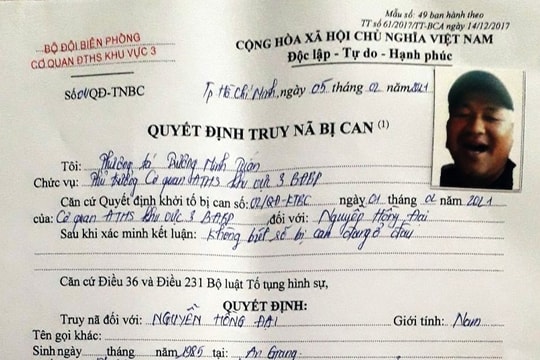 Mẫu số: 49 ban hành theo
TT số 61/2017/TT-BCA ngày 14/12/2017
BỘ ĐỘI BIÊN PHÒNG
CƠ QUAN ĐTHS KHU VỰC 3
CỘNG HÒA XÃ HỘI CHỦ NGHĨA VIỆT NAM
Độc lập - Tự do - Hạnh phúc
Số: 01/QĐ-TNBC
Tp Hồ Chí Minh, ngày 05 tháng 02 năm 2021
QUYẾT ĐỊNH TRUY NÃ BỊ CAN (1)
Tôi: Thượng tá Dương Minh
Chức vụ: Phó trưởng Cơ quan ĐTHS khu vực 3 BĐBP
Căn cứ Quyết định khởi tố bị can số: 02/QĐ-KTBC ngày 01 tháng 02 năm 2021
của: Cơ quan ĐTHS khu vực 3 BĐBP đối với: Nguyễn Hồng Đại
Sau khi xác minh kết luận: không biết rõ bị can đang ở đâu
Căn cứ Điều 36 và Điều 231 Bộ luật Tố tụng hình sự,
QUYẾT ĐỊNH:
Truy nã đối với: NGUYỄN HỒNG ĐẠI Giới tính: Nam
Tên gọi khác:
Sinh ngày tháng năm 1985 tại: An Giang